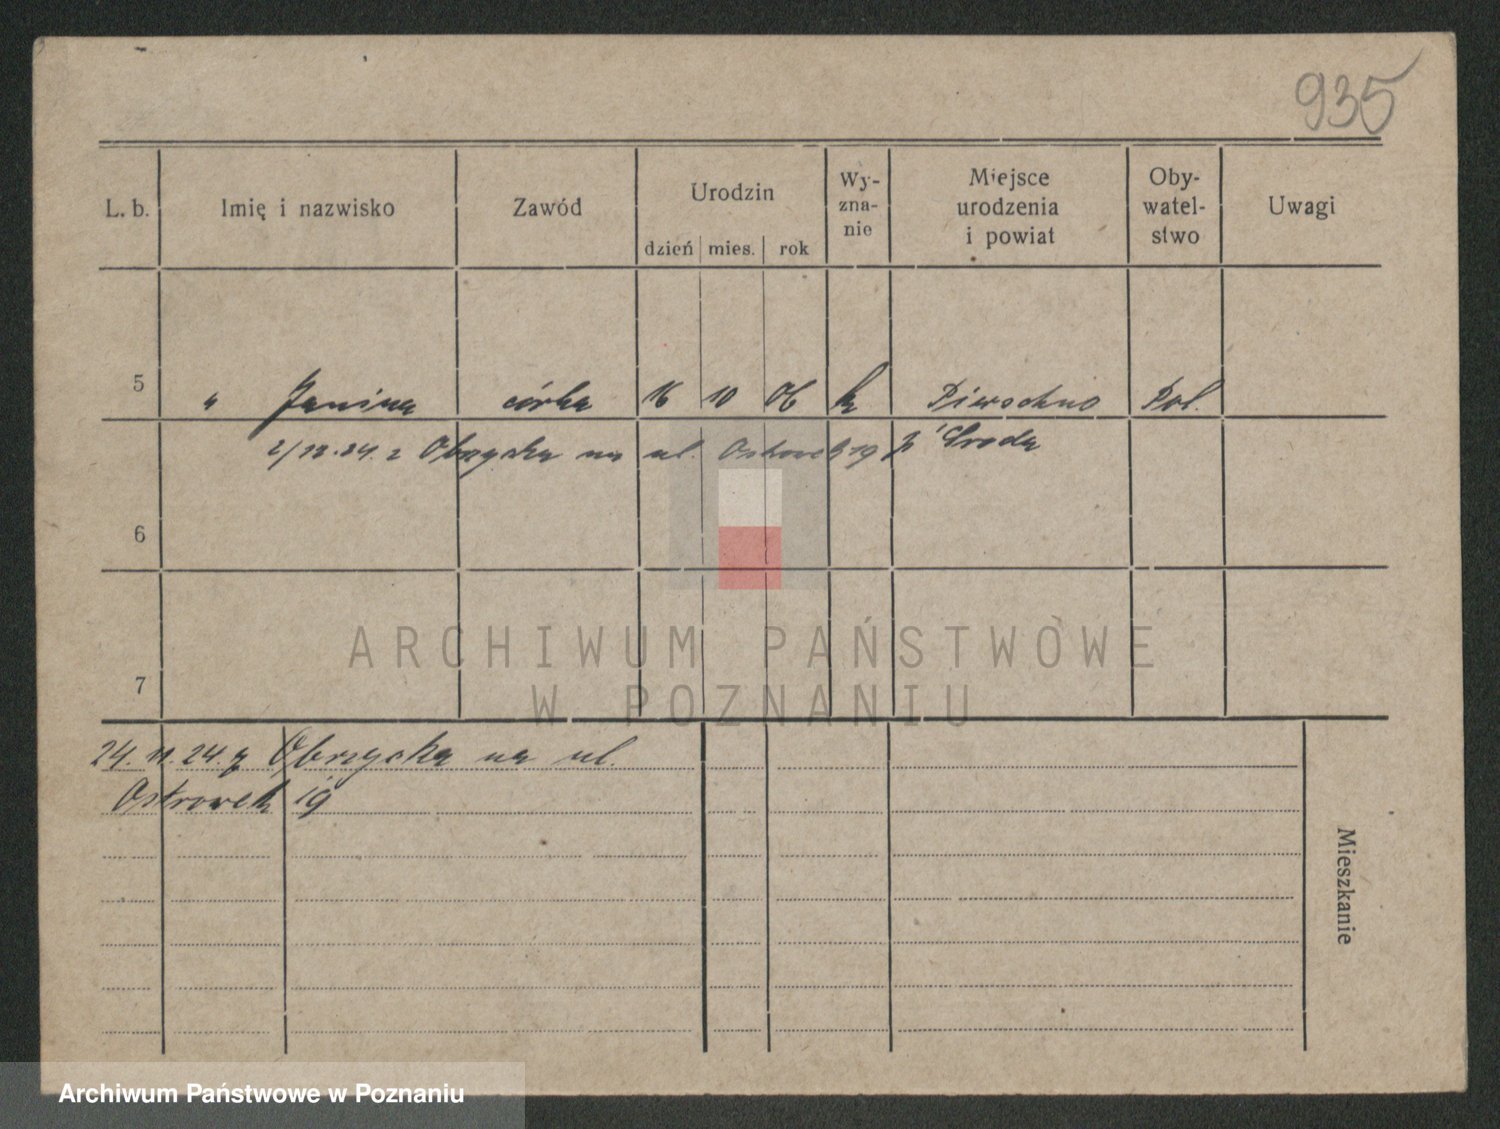 935
L. b. Imię i nazwisko Zawód Urodzin Wy-zna-nie Miejsce urodzenia i powiat Oby-watel-stwo Uwagi
dzień mies. rok
5 " Janina córka 16 10 06 k Pierzchno Pol.
2/12.24. z Obrzycka na ul. Ostrowek 19 p Środa
6
7
ARCHIWUM PAŃSTWOWE
W POZNANIU
24. 11. 24. z Obrzycka na ul.
Ostrowek 19
Mieszkanie
Archiwum Państwowe w Poznaniu